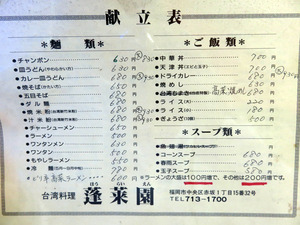 献立表
＊麵類＊
チャンポン 630円
皿うどん(やわらかい方) 680円
カレー皿うどん 680円
焼そば 680円
五目そば 680円
ダル麵 680円
焼米粉 680円
汁米粉 680円
チャーシューメン
ラーメン
ワンタンメン 600円
ワンタン
もやしラーメン 550円
冷麵
ピリ辛高菜ラーメン 600円
＊ご飯類＊
中華丼 700円
天津丼(エビと玉子) 700円
ドライカレー 680円
焼めし 630円
高菜焼めし 680円
ライス(大) 220円
ライス(小) 180円
ぎょうざ 500円
＊スープ類＊
コーンスープ 680円
春雨スープ 680円
玉子スープ 580円
＊ラーメンの大盛は100円増で、その他は200円増です。
台湾料理 蓬莱園
ほう らい えん
福岡市中央区赤坂1丁目15番32号
TEL 713-1700